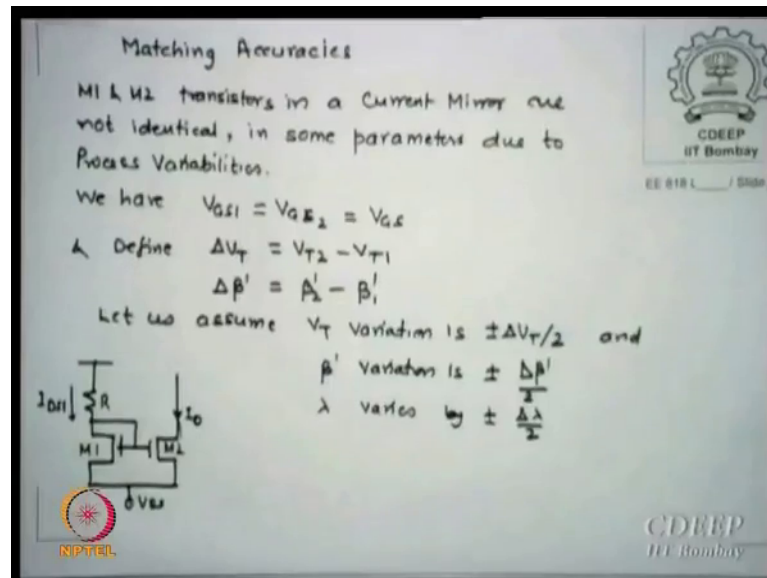 Matching Accuracies
M1 & M2 transistors in a Current Mirror are
not identical, in some parameters due to
Process Variabilities.
We have VGS1 = VGS2 = VGS
& Define ΔVT = VT2 - VT1
Δβ' = β2' - β1'
Let us assume VT variation is ±ΔVT/2 and
β' variation is ± Δβ'/2
λ varies by ± Δλ/2
R
I0
M1
M2
NPTEL
CDEEP
IIT Bombay
EE 618 L____ / Slide
CDEEP
IIT Bombay